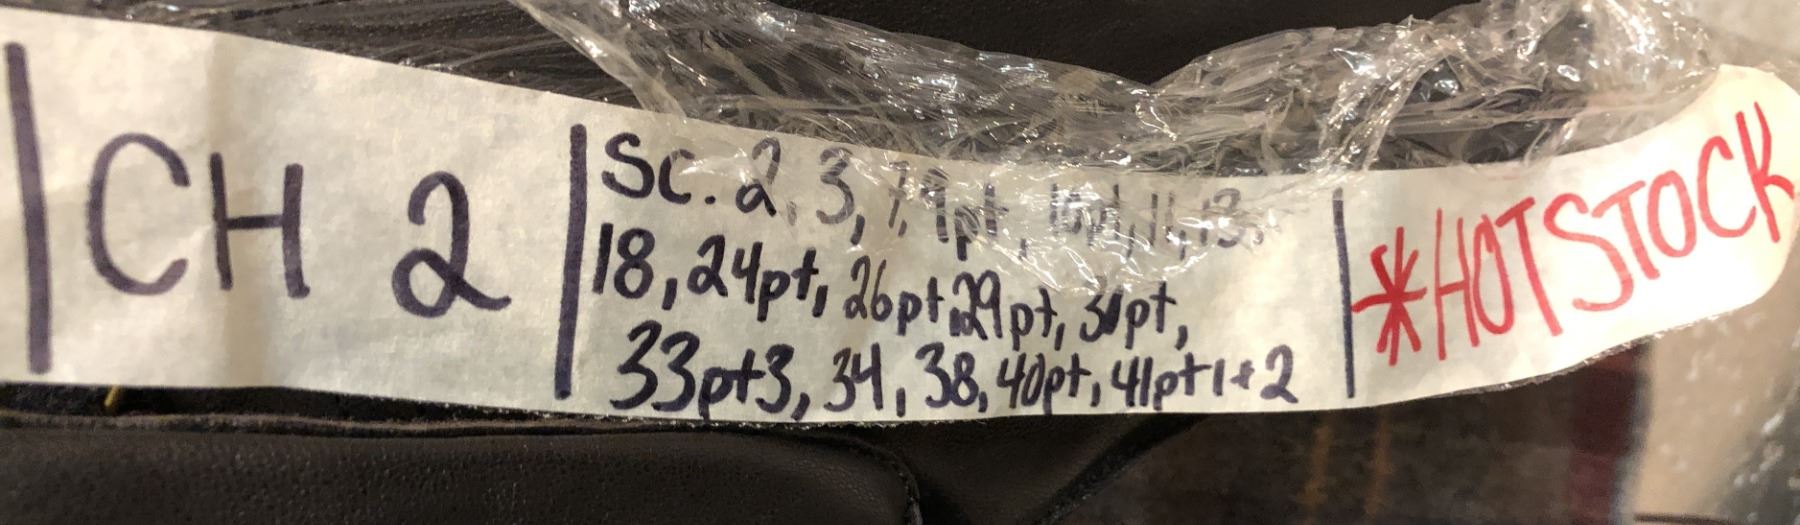 CH 2
Sc. 2, 3, 7, 9pt, 10pt, 11, 13,
18, 24pt, 26pt, 29pt, 31pt,
33pt3, 34, 38, 40pt, 41pt1+2
*HOTSTOCK